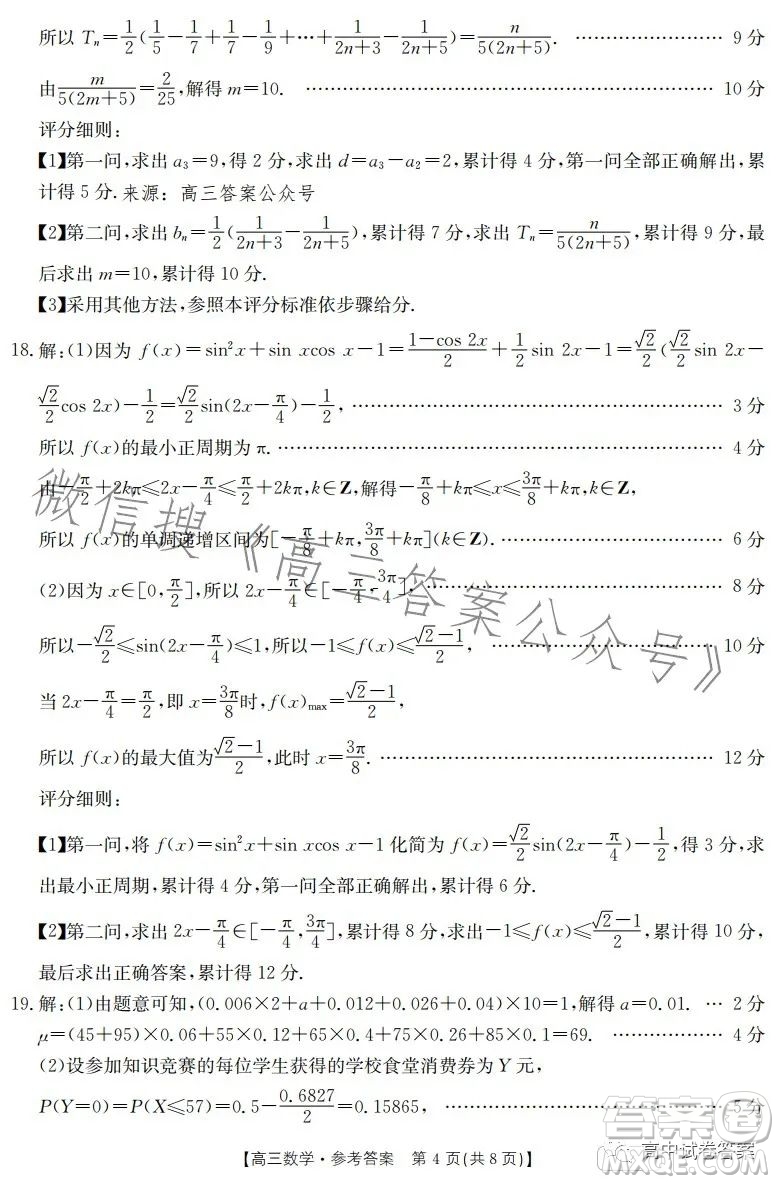 所以 Tₙ=1/2(1/5−1/7+1/7−1/9+…+1/(2n+3)−1/(2n+5))=n/(5(2n+5)). …… 9 分
由m/(5(2m+5))=2/25,解得 m=10. …… 10 分
评分细则:
【1】第一问,求出 a₃=9,得 2 分,求出 d=a₃−a₂=2,累计得 4 分,第一问全部正确解出,累
计得 5 分.来源：高三答案公众号
【2】第二问,求出 bₙ=1/2(1/(2n+3)−1/(2n+5)),累计得 7 分,求出 Tₙ=n/(5(2n+5)),累计得 9 分,最
后求出 m=10,累计得 10 分.
【3】采用其他方法,参照本评分标准依步骤给分.
18.解:(1)因为 f(x)=sin²x+sin xcos x−1=(1−cos 2x)/2+1/2 sin 2x−1=√2/2(√2/2 sin 2x−
√2/2 cos 2x)−1/2=√2/2 sin(2x−π/4)−1/2, …… 3 分
所以 f(x)的最小正周期为 π. …… 4 分
由−π/2+2kπ≤2x−π/4≤π/2+2kπ,k∈Z,解得−π/8+kπ≤x≤3π/8+kπ,k∈Z,
所以 f(x)的单调递增区间为[−π/8+kπ,3π/8+kπ](k∈Z). …… 6 分
(2)因为 x∈[0,π/2],所以 2x−π/4∈[−π/4,3π/4], …… 8 分
所以−√2/2≤sin(2x−π/4)≤1,所以−1≤f(x)≤(√2−1)/2, …… 10 分
当 2x−π/4=π/2,即 x=3π/8时,f(x)max=(√2−1)/2,
所以 f(x)的最大值为(√2−1)/2,此时 x=3π/8. …… 12 分
评分细则:
【1】第一问,将 f(x)=sin²x+sin xcos x−1 化简为 f(x)=√2/2 sin(2x−π/4)−1/2,得 3 分,求
出最小正周期,累计得 4 分,第一问全部正确解出,累计得 6 分.
【2】第二问,求出 2x−π/4∈[−π/4,3π/4],累计得 8 分,求出−1≤f(x)≤(√2−1)/2,累计得 10 分,
最后求出正确答案,累计得 12 分.
19.解:(1)由题意可知,(0.006×2+a+0.012+0.026+0.04)×10=1,解得 a=0.01. … 2 分
μ=(45+95)×0.06+55×0.12+65×0.4+75×0.26+85×0.1=69. …… 4 分
(2)设参加知识竞赛的每位学生获得的学校食堂消费券为 Y 元,
P(Y=0)=P(X≤57)=0.5−0.6827/2=0.15865, …… 5 分
【高三数学·参考答案 第 4 页(共 8 页)】
微信搜《高三答案公众号》
答案圈
高中试卷答案
MXQE.COM